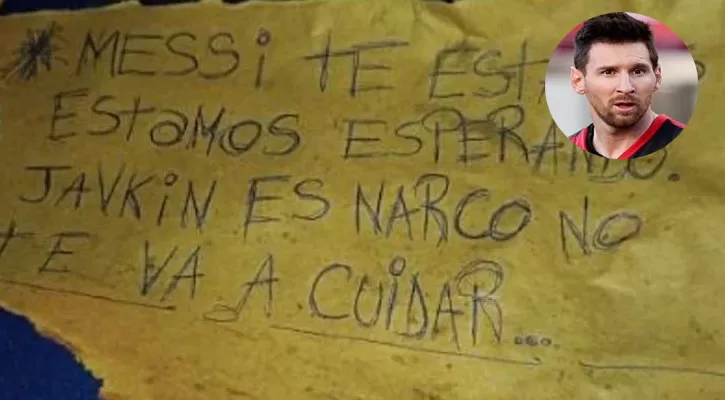 *MESSi tE
EStaMOS ESPERANDO.
JAVKiN ES NARCO NO
tE VA A CUiDAR...